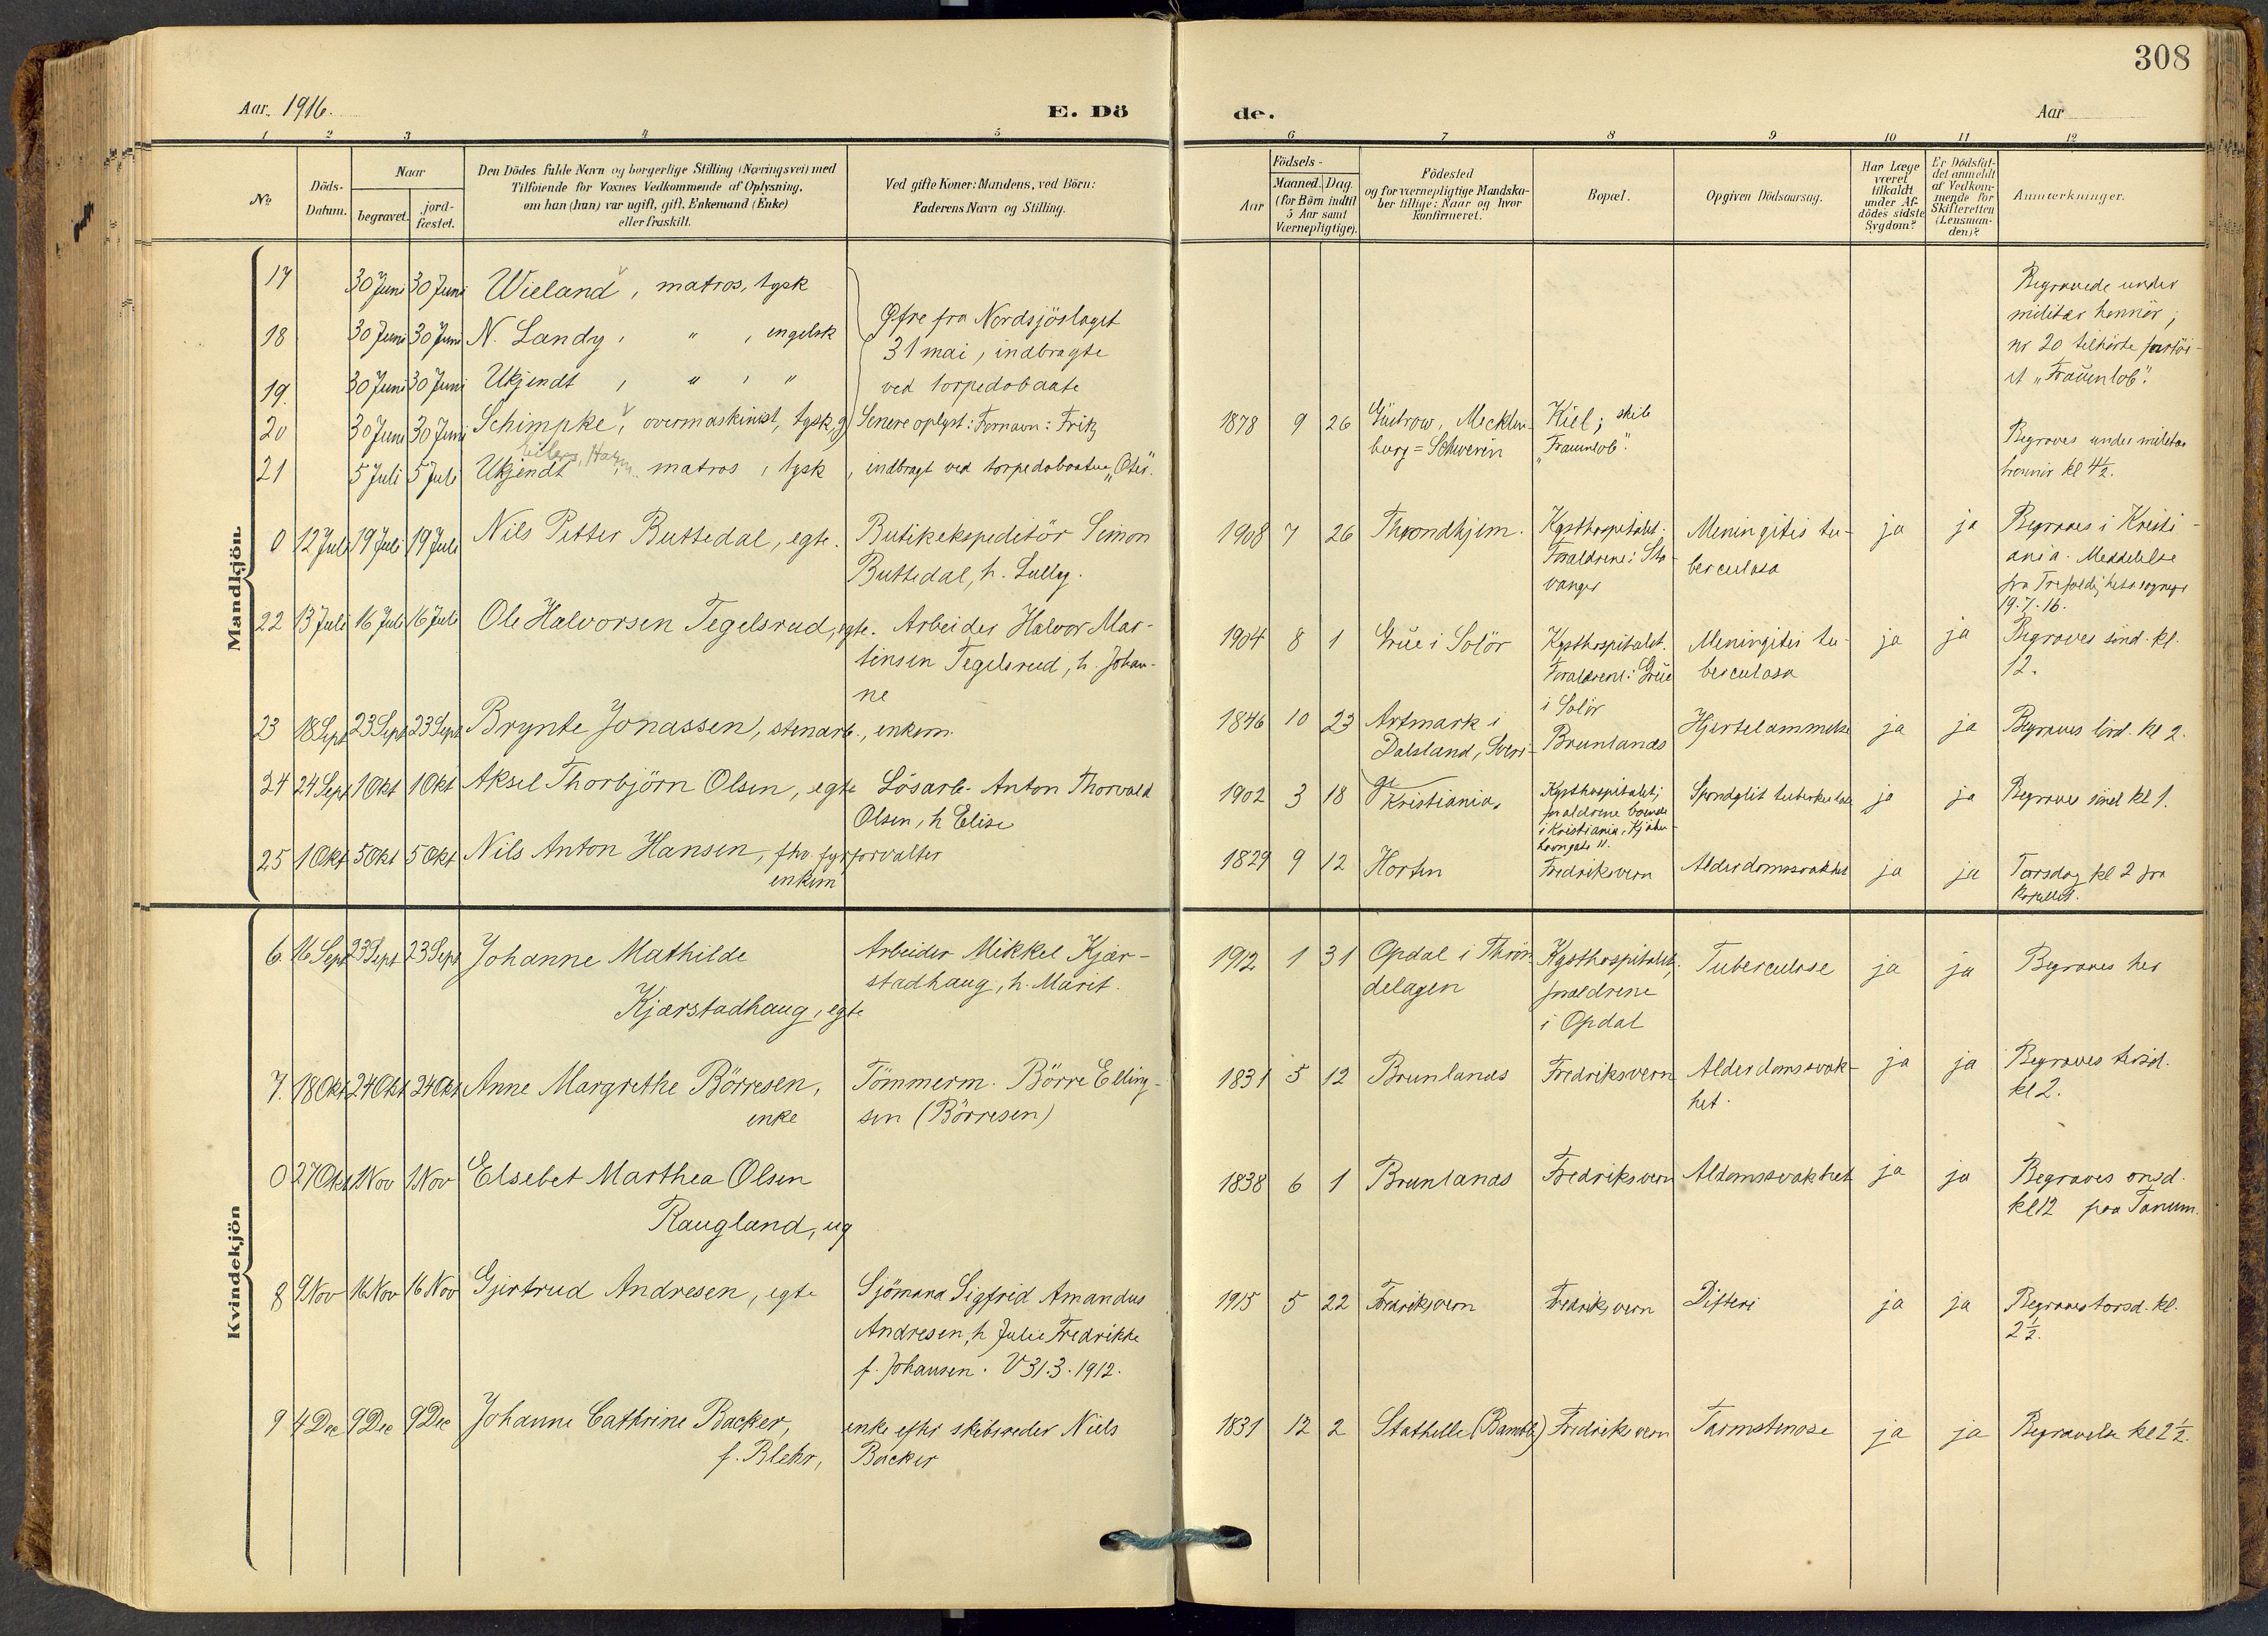 308
Aar. 1916.
E. Dö
de.
Aar
1 2 3 4 5
6 7 8 9 10 11 12
No
Döds-
Datum.
Naar
begravet.
jord-
fæstet.
Den Dödes fulde Navn og borgerlige Stilling (Næringsvei) med
Tilföiende for Voxnes Vedkommende af Oplysning,
om han (hun) var ugift, gift, Enkemand (Enke)
eller fraskilt.
Ved gifte Koner: Mandens, ved Börn:
Faderens Navn og Stilling.
Födsels-
Aar
Maaned. Dag.
(for Börn indtil
5 Aar samt
Værnepligtige).
Födested
og for værnepligtige Mandska-
ber tillige: Naar og hvor
konfirmeret.
Bopæl.
Opgiven Dödsaarsag.
Har Læge
været
tilkaldt
under Af-
dödes sidste
Sygdom?
Er Dödsfal-
det anmeldt
af Vedkom-
mende for
Skifteretten
(Lensman-
den)?
Anmærkninger.
Mandkjön.
17 30 Juni 30 Juni Wieland, matros, tysk
18 30 Juni 30 Juni N. Landy, " , engelsk
19. 30 Juni 30 Juni Ukjendt , " , "
Ofre fra Nordsjöslaget
31 mai, indbragte
ved torpedobaate
Begravede under
militær honnör;
nr 20 tilhörte fartöi-
et "Frauenlob".
20 30 Juni 30 Juni Schimpke, overmaskinist, tysk, g Senere oplyst: Fornavn: Fritz
1878 9 26 Güstrow, Mecklen-
burg=Schwerin
Kiel; skib
"Frauenlob".
21 5 Juli 5 Juli Ukjendt matros, tysk, indbragt ved torpedobaaten "Oter".
Begraves under militær
honnör kl 4½.
0 12 Juli 19 Juli 19 Juli Nils Petter Buttedal, egte.
Butikekspeditör Simon
Buttedal, h. Lully.
1908 7 26 Throndhjem.
Kysthospitalet.
Forældrene: Sta-
vanger
Meningitis tu-
berculosa
ja ja
Begraves i Kristi-
ania. Meddelelse
fra Trefoldighets sognepr
19.7.16.
22 13 Juli 16 Juli 16 Juli Ole Halvorsen Tegelsrud, egte.
Arbeider Halvor Mar-
tinsen Tegelsrud, h. Johan-
ne
1904 8 1 Grue i Solör
Kysthospitalet.
Forældrene: Grue
i Solör
Meningitis tu-
berculosa
ja ja
Begraves sönd. kl.
12.
23 18 Sept 23 Sept 23 Sept Brynte Jonassen, stenarb., enkem.
1846 10 23 Artmark i
Dalsland, Sveri-
ge
Brunlanes
Hjertelammelse
ja ja
Begraves lörd. kl 2.
24 24 Sept 1 Okt 1 Okt Aksel Thorbjörn Olsen, egte
Lösarb. Anton Thorvald
Olsen, h Elise
1902 3 18 Kristiania.
Kysthospitalet;
forældrene boende
i Kristiania, Kjöben-
havngate 11.
Spondylit tuberkuløs
ja ja
Begraves sönd kl 1.
25 1 Okt 5 Okt 5 Okt Nils Anton Hansen, fhv. fyrforvalter
enkem
1829 9 12 Horten
Fredriksvern
Alderdomssvakhet
ja ja
Torsdag kl 2 fra
kapellet.
Kvindekjön
6. 16 Sept 23 Sept 23 Sept Johanne Mathilde
Kjærstadhaug, egte
Arbeider Mikkel Kjær-
stadhaug, h. Marit.
1912 1 31 Opdal i Thrön-
delagen
Kysthospitalet,
forældrene
i Opdal
Tuberculose
ja ja
Begraves her
7. 18 Okt 24 Okt 24 Okt Anne Margrethe Börresen,
enke
Tömmerm. Börre Elling-
sen (Börresen)
1831 5 12 Brunlanes
Fredriksvern
Alderdomssvak-
het.
ja ja
Begraves tirsd.
kl 2.
0 27 Okt 1 Nov 1 Nov Elsebet Marthea Olsen
Raugland, ug
1838 6 1 Brunlanes
Fredriksvern
Aldomssvakhet
ja ja
Begraves onsd.
kl 12 paa Tanum.
8 9 Nov 16 Nov 16 Nov Gjertrud Andresen, egte
Sjömann Sigfrid Amandus
Andresen, h Julie Fredrikke
f. Johansen. V 31.3.1912.
1915 5 22 Fredriksvern
Fredriksvern
Difteri
ja ja
Begraves torsd. kl.
2½.
9 4 Dec 9 Dec 9 Dec Johanne Cathrine Backer,
f. Blehr,
enke efter skibsreder Niels
Backer
1831 12 2 Stathelle (Bamble)
Fredriksvern
Tarmstenose
ja ja
Begravelse kl 2½.